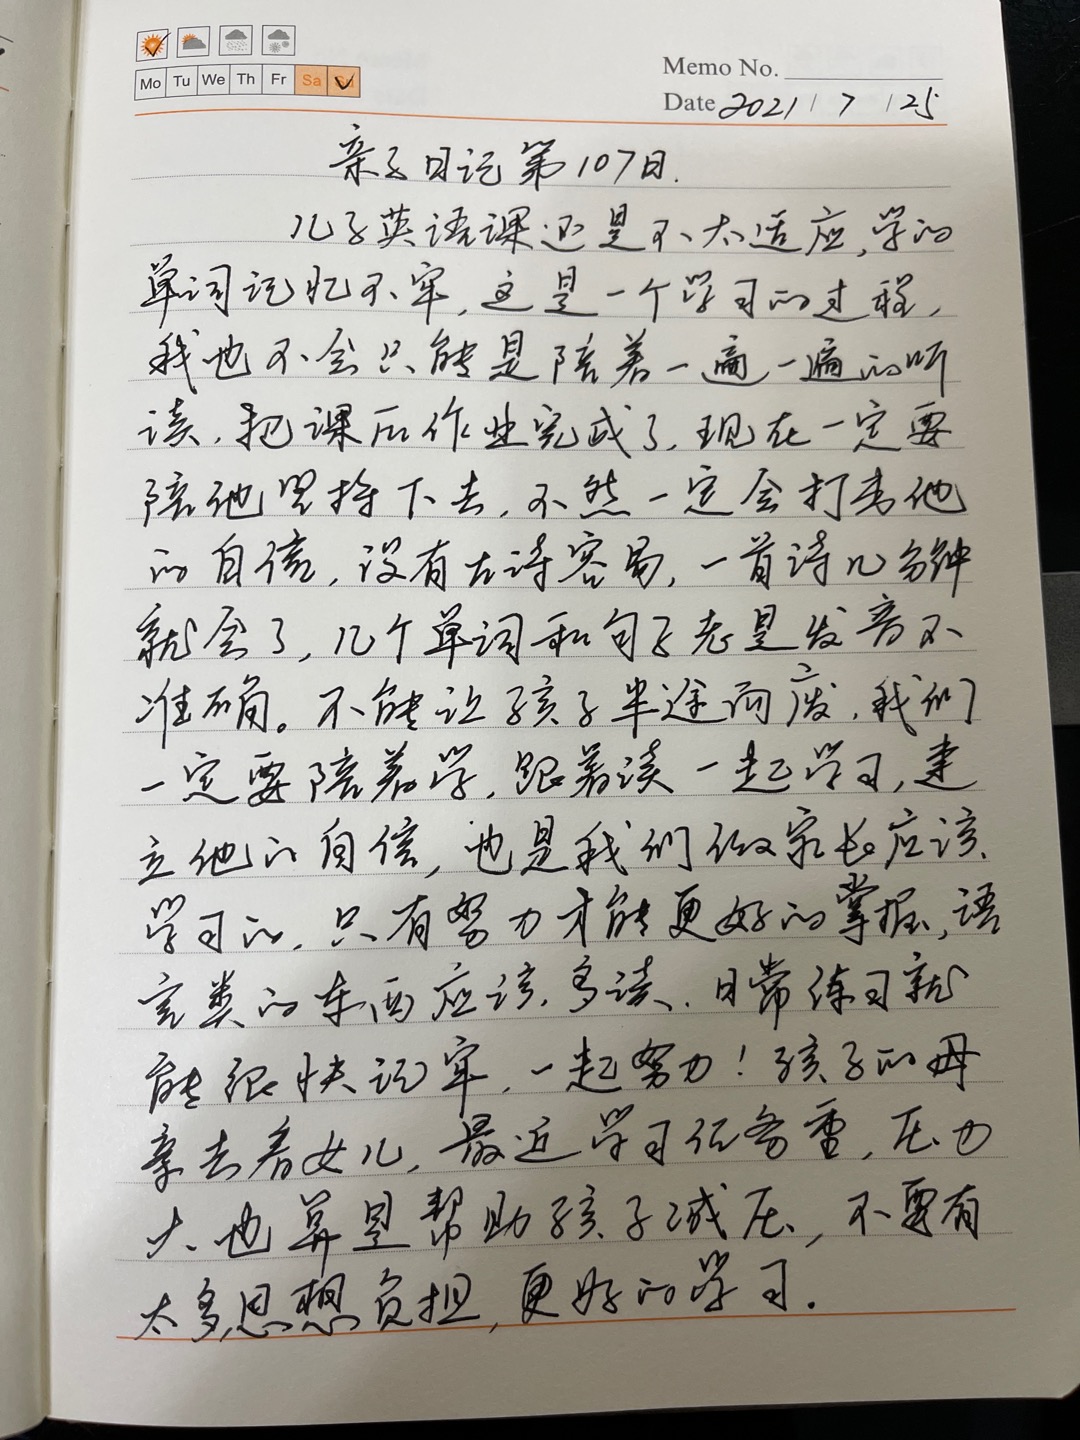 Mo Tu We Th Fr Sa
Memo No.
Date 2021 / 7 / 25
亲子日记第107日.
儿子英语课还是不太适应,学的
单词记忆不牢,这是一个学习的过程,
我也不会只能是陪着一遍一遍的听
读,把课后作业完成了,现在一定要
陪他坚持下去,不然一定会打击他
的自信,没有古诗容易,一首诗几分钟
就会了,几个单词和句子老是发音不
准确。不能让孩子半途而废,我们
一定要陪着学,跟着读一起学习,建
立他的自信,也是我们做家长应该
学习的,只有努力才能更好的掌握,语
言类的东西应该多读,日常练习就
能很快记牢,一起努力!孩子的母
亲去看女儿,最近学习任务重,压力
大,也算是帮助孩子减压,不要有
太多思想负担,更好的学习.